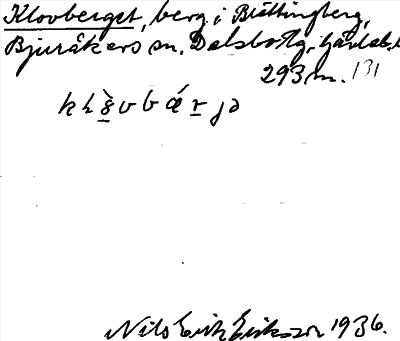 Klovberget, berg i Brättingberg,
Bjuråkers sn, Delsbo tg, Gävleb. l
293 m. 131
Nils Erik Eriksson 1936.